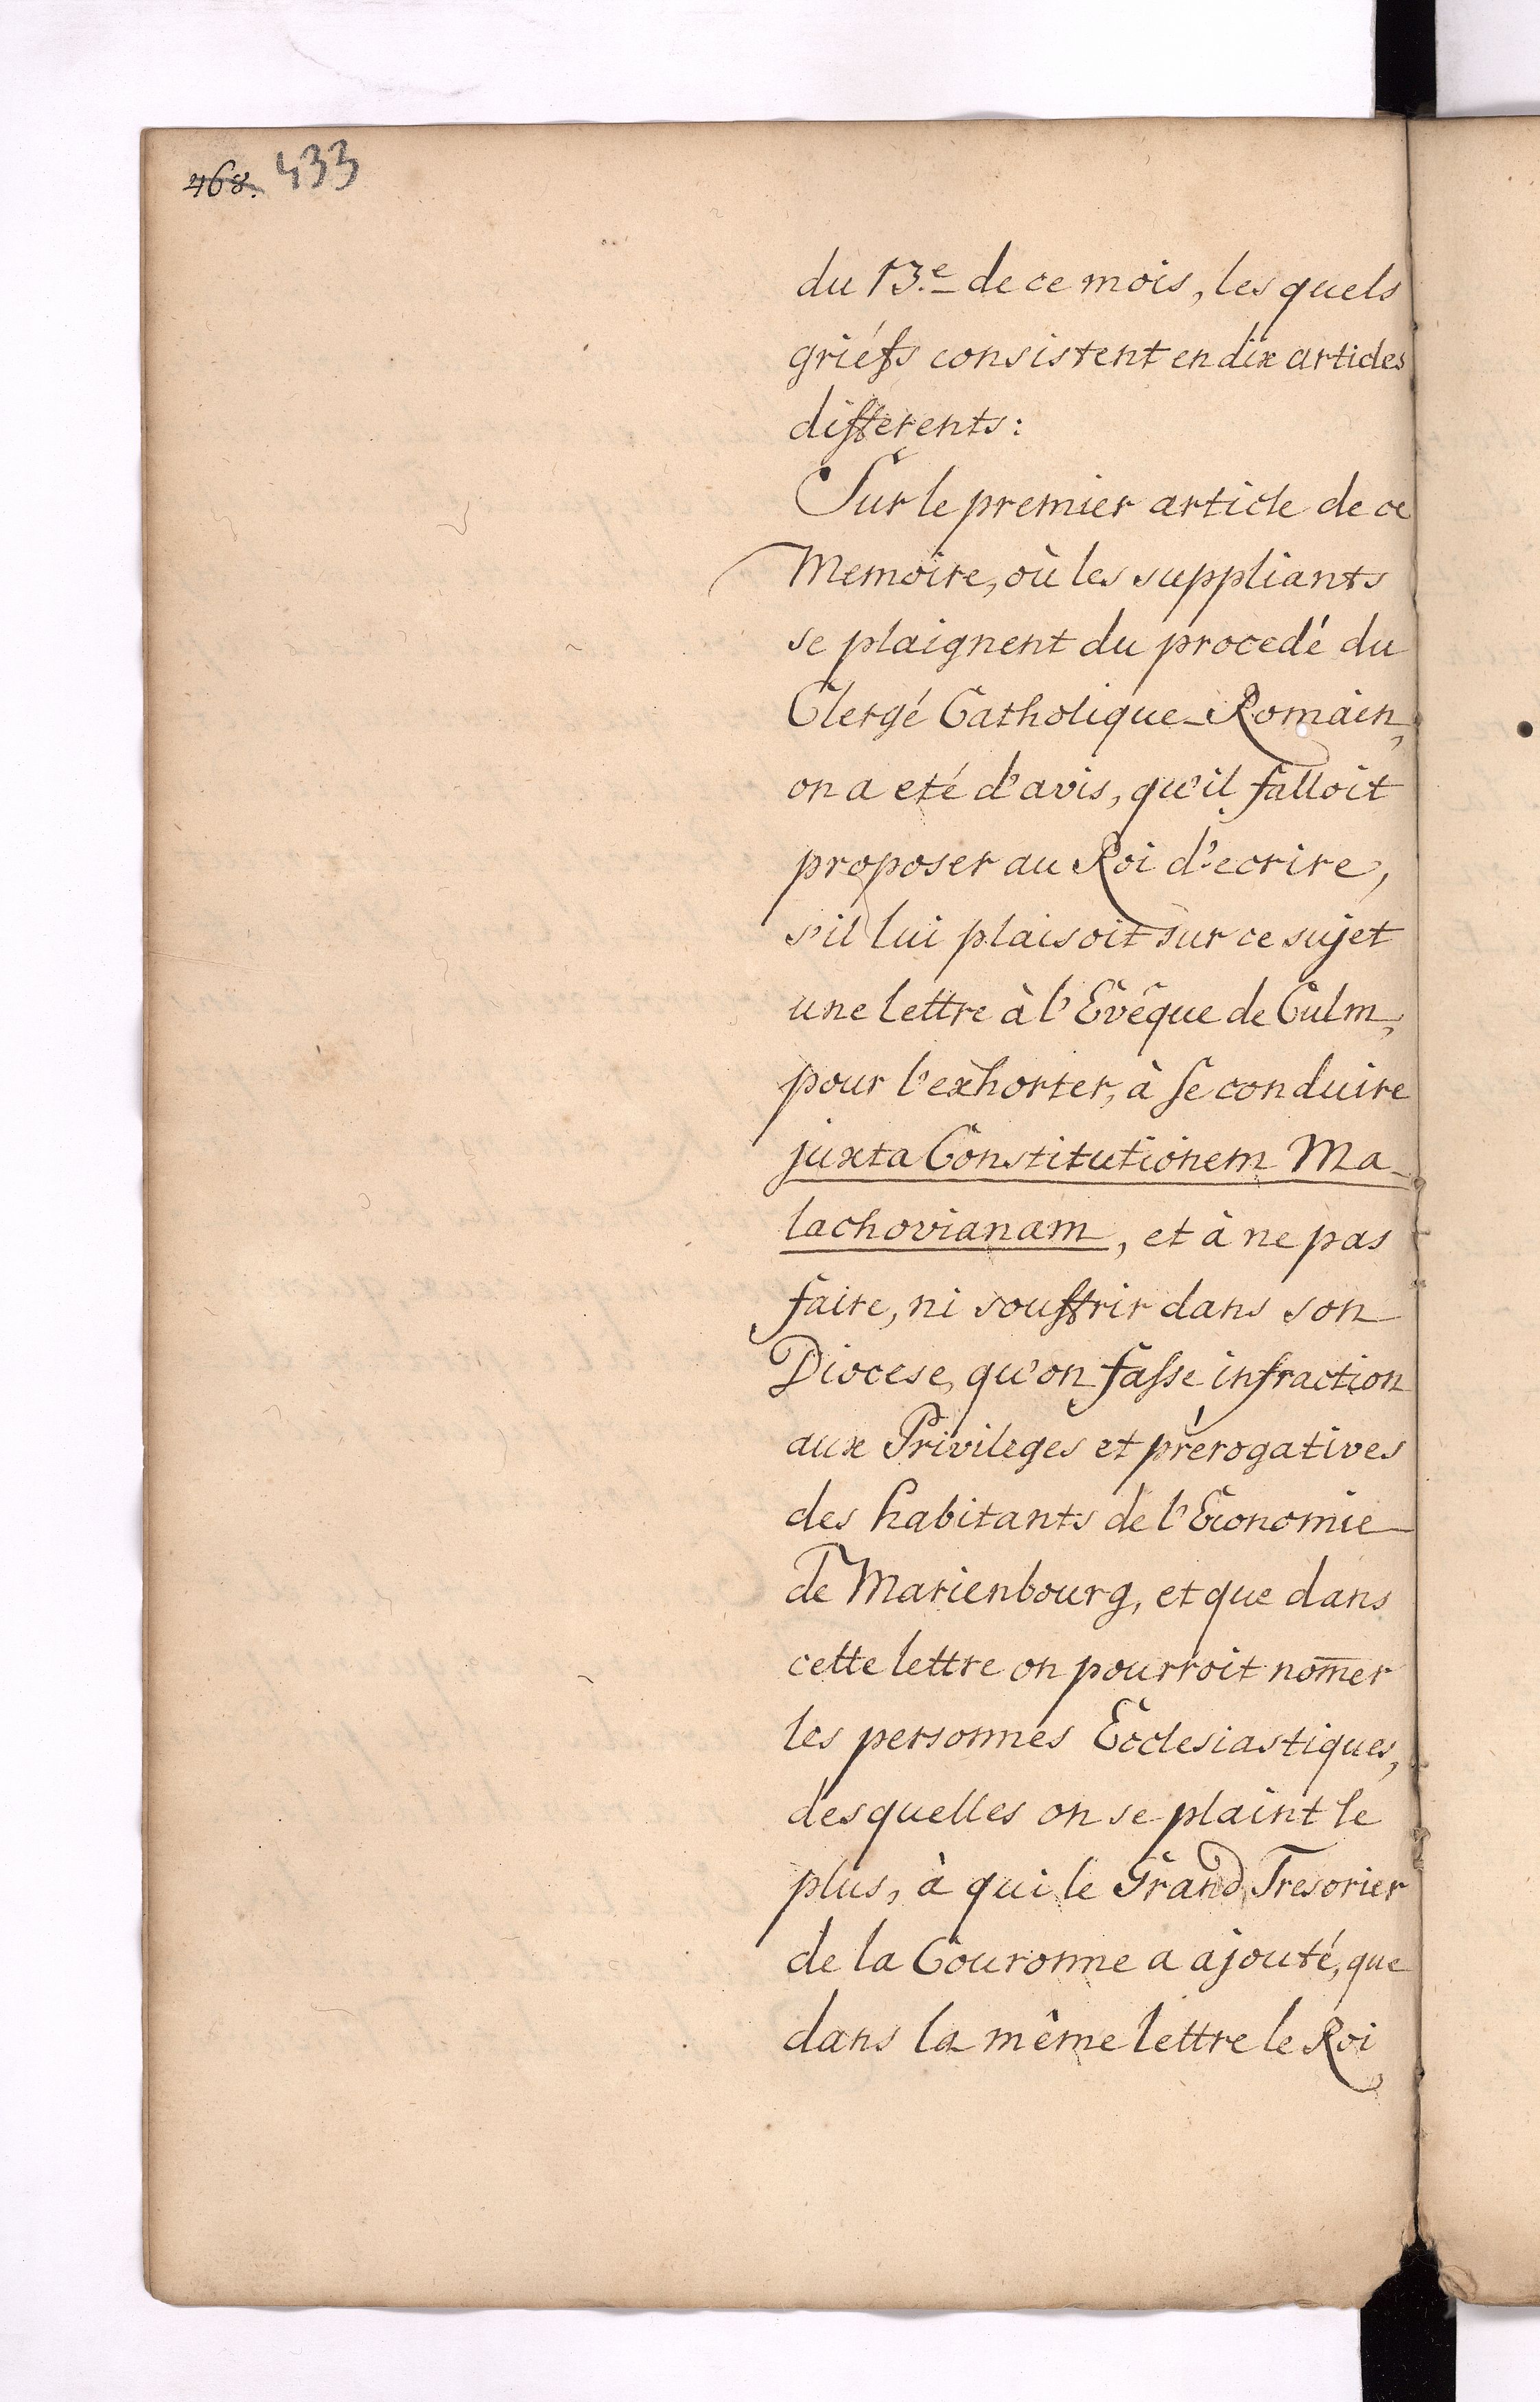 468. 433
du 13.e de ce mois, les quels
griéfs consistent en dix articles
differents:
Sur le premier article de ce
Memoire, où les suppliants
se plaignent du procedé du
Clergé Catholique-Romain,
on a eté d'avis, qu'il falloit
proposer au Roi d'ecrire,
s'il lui plaisoit sur ce sujet
une lettre à l'Evêque de Culm,
pour l'exhorter, à se conduire
juxta Constitutionem Ma-
lachovianam, et à ne pas
faire, ni souffrir dans son
Diocese, qu'on fasse infraction
aux Privileges et prérogatives
des habitants de l'Economie
de Marienbourg, et que dans
cette lettre on pourroit nom̄er
les personnes Ecclesiastiques,
desquelles on se plaint le
plus, à qui le Grand Tresorier
de la Couronne a ajouté, que
dans la même lettre le Roi